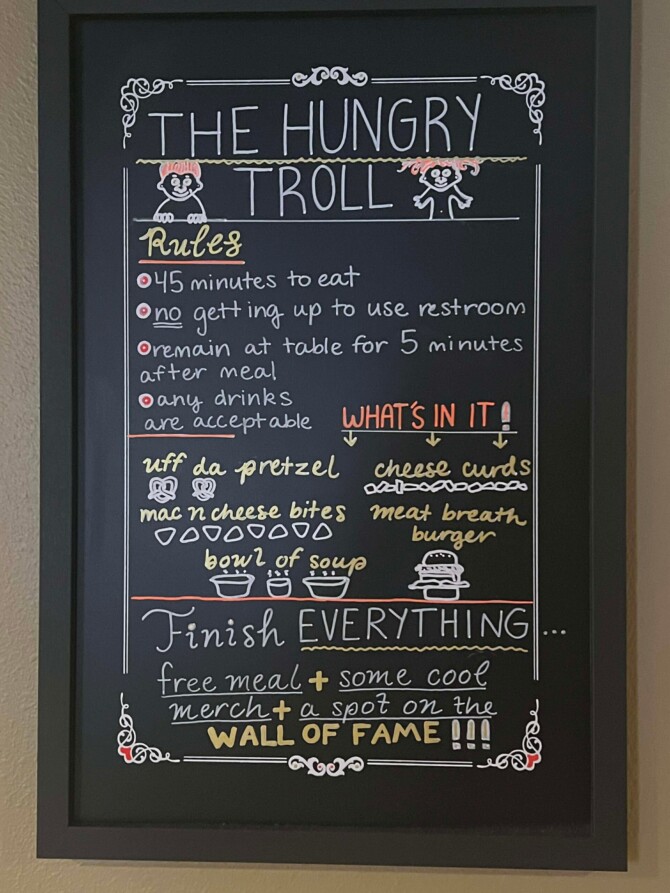 THE HUNGRY
TROLL
Rules
45 minutes to eat
no getting up to use restroom
remain at table for 5 minutes
after meal
any drinks
are acceptable
WHAT'S IN IT!
uff da pretzel
cheese curds
mac n cheese bites
meat breath
burger
bowl of soup
Finish EVERYTHING...
free meal + some cool
merch + a spot on the
WALL OF FAME !!!